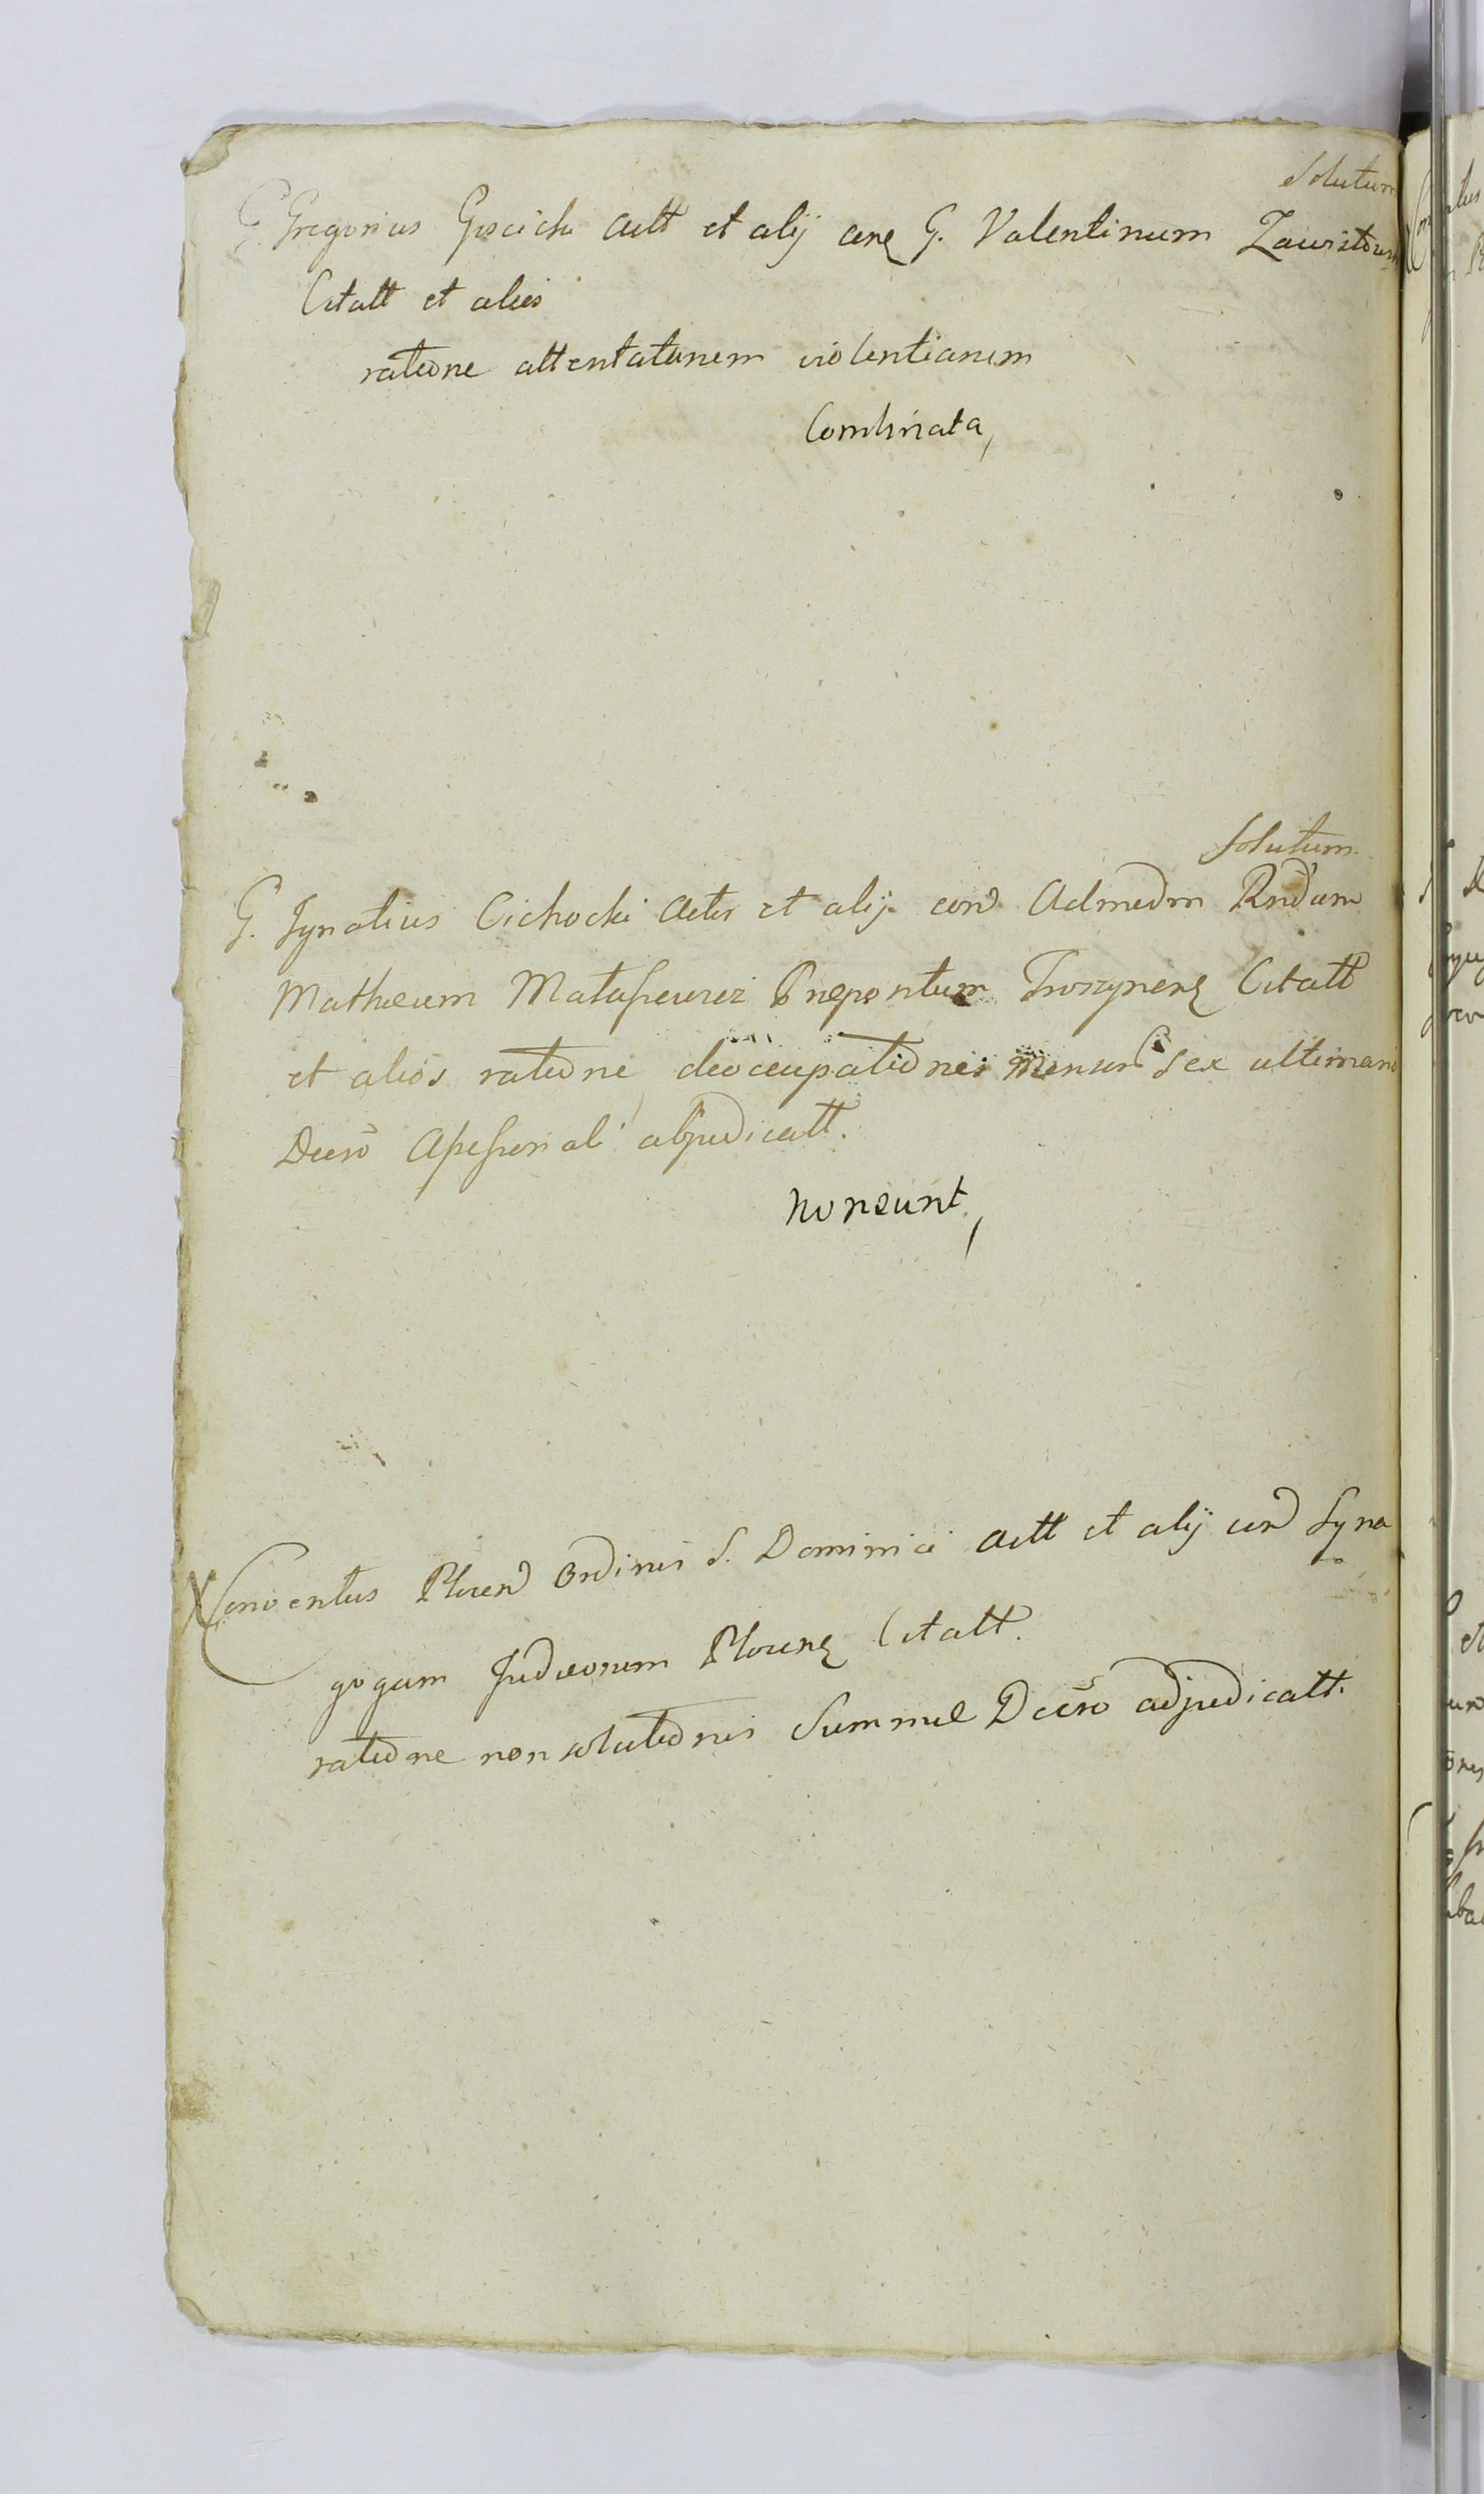 Solutum
G. Gregorius Goscicki Actt et alij cenę G. Valentinum
Citatt et alios
ratione attentatarum violentiarum
Combinata,
Solutum.
G. Ignatius Cichocki Actor et alij con Admodm Rndum
Mathæum Præpositum Citatt
et alios ratione deoccupationis Mensur Sex ultimario
Decro Assessoriali abjudicatt.
non sunt,
Conventus Plocen Ordinis S. Dominici Actt et alij con Syna
gogam Judæorum Plocenę Citatt.
ratione non solutionis Summæ Decro adjudicatt.